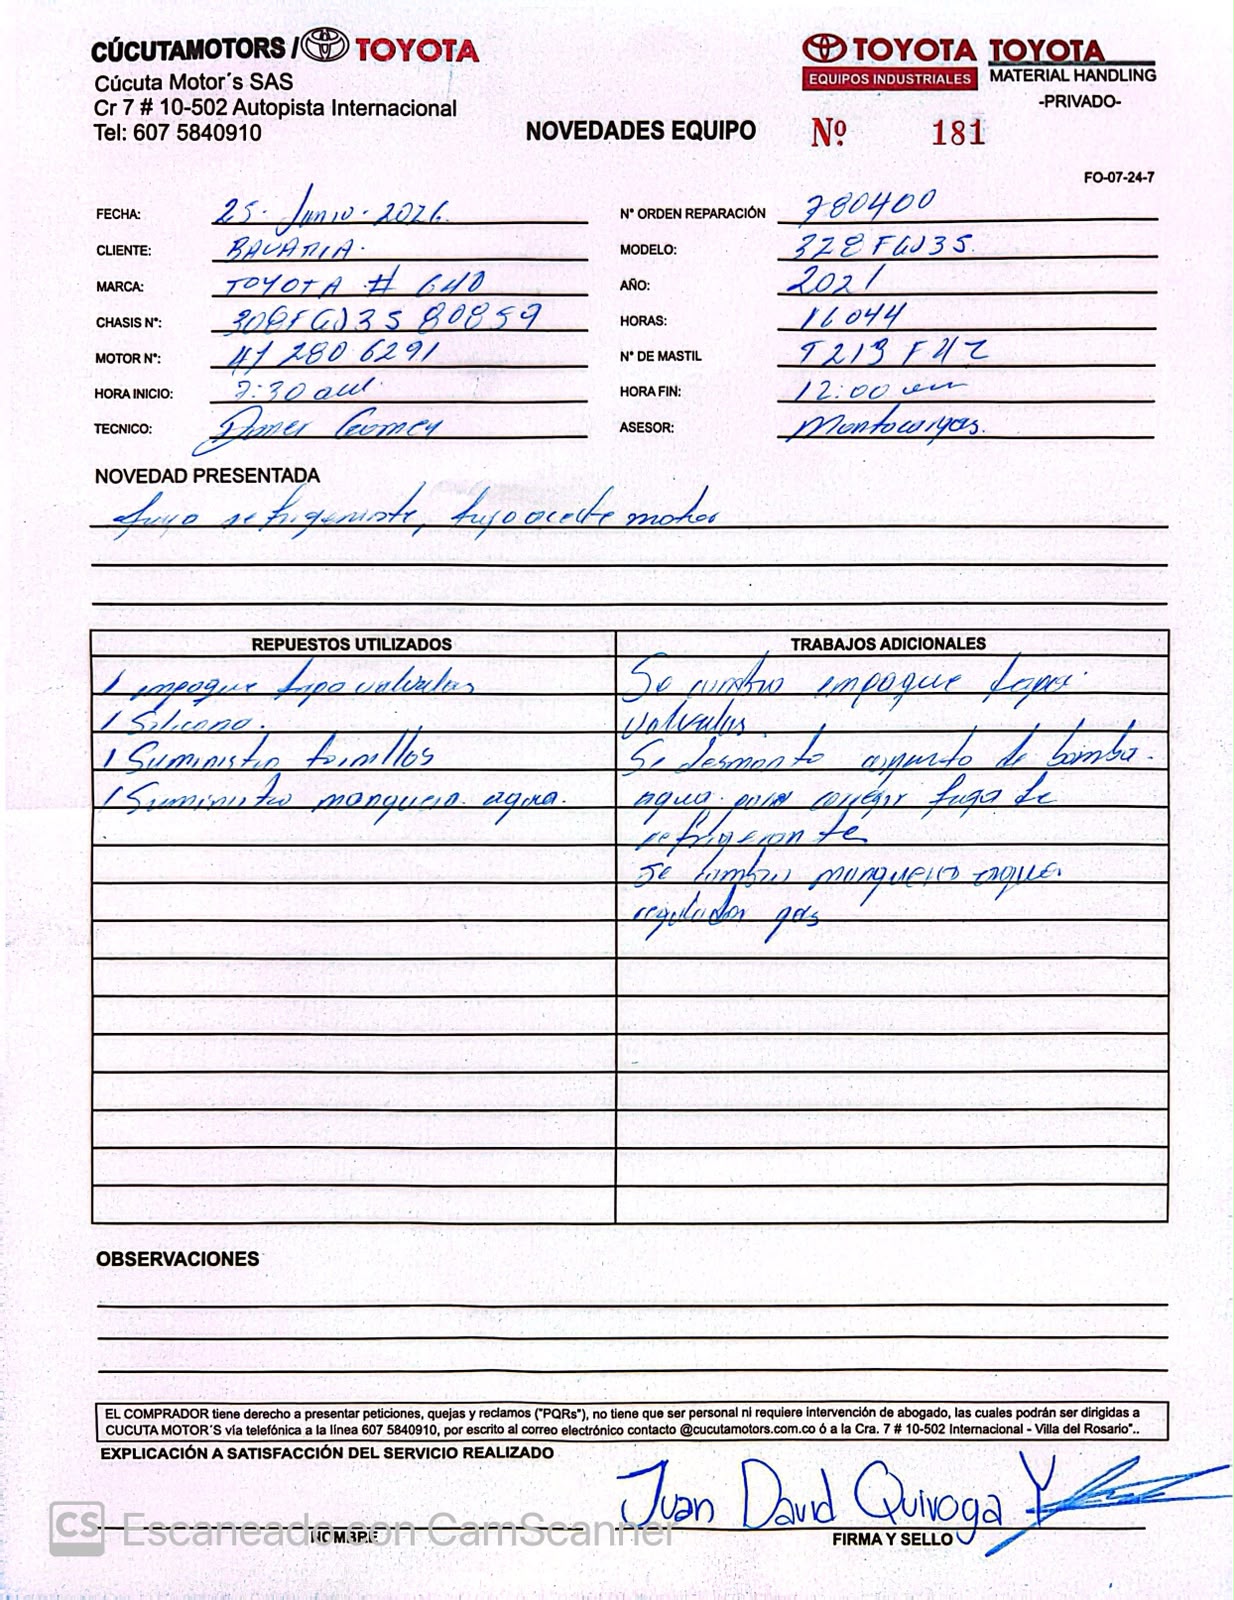 CÚCUTAMOTORS / TOYOTA
Cúcuta Motor´s SAS
Cr 7 # 10-502 Autopista Internacional
Tel: 607 5840910
TOYOTA
EQUIPOS INDUSTRIALES
TOYOTA
MATERIAL HANDLING
-PRIVADO-
NOVEDADES EQUIPO
Nº 181
FO-07-24-7
FECHA: 25- Junio-2026.
N° ORDEN REPARACIÓN 780400
CLIENTE: BAVARIA.
MODELO: 328FGJ35.
MARCA: TOYOTA # 640
AÑO: 2021
CHASIS N°: 308FGJ35 80859
HORAS: 16044
MOTOR N°: 41 280 6291
N° DE MASTIL
HORA INICIO: 7:30 am.
HORA FIN: 12:00 am
TECNICO: Gomez
ASESOR:
NOVEDAD PRESENTADA
fuga refrigerante, fuga aceite motor
REPUESTOS UTILIZADOS
1 empaque tapa valvulas
1 Silicona.
1 Suministro tornillos
1 Suministro manguera agua.
TRABAJOS ADICIONALES
Se cambio empaque tapa
valvulas.
Se desmonto conjunto de bomba
agua para corregir fuga de
refrigerante
Se cambio manguera agua
regulador gas
OBSERVACIONES
EL COMPRADOR tiene derecho a presentar peticiones, quejas y reclamos ("PQRs"), no tiene que ser personal ni requiere intervención de abogado, las cuales podrán ser dirigidas a
CUCUTA MOTOR´S vía telefónica a la línea 607 5840910, por escrito al correo electrónico contacto @cucutamotors.com.co ó a la Cra. 7 # 10-502 Internacional - Villa del Rosario"..
EXPLICACIÓN A SATISFACCIÓN DEL SERVICIO REALIZADO
Juan David Quiroga Y
NOMBRE
FIRMA Y SELLO
CS Escaneado con CamScanner